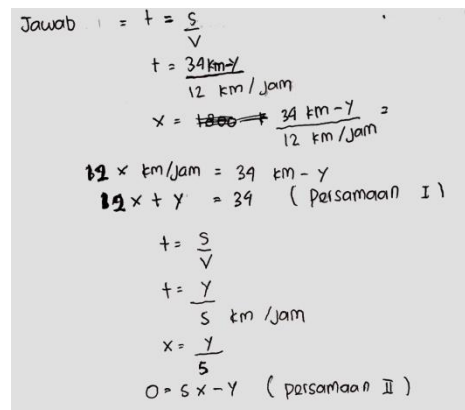 Jawab : = t = S/V
t = 34 km-y / 12 km/jam
x = 34 km-y / 12 km/jam =
12 x km/jam = 34 km - y
12x + y = 34 ( Persamaan I )
t = S/V
t = y / 5 km/jam
x = y/5
0 = 5x - y ( persamaan II )